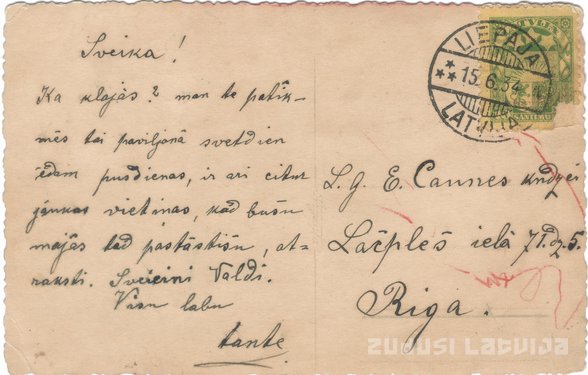 Sveika!
Ka klājās? man te patik-
mēs tai paviljonā svetdien
ēdam pusdienas, ir ari citur
jaukas vietinas, kad bušu
mājās tad pastāstišu, at-
raksti. Sveicini Valdi.
Visu labu
tante
LATVIJA
SANTIMU
LIEPĀJA
15.6.34
LATVIJA
L. g. E. Cannes kndze
Lačplēš ielā 71. dz. 5.
Riga.
ZUDUSI LATVIJA